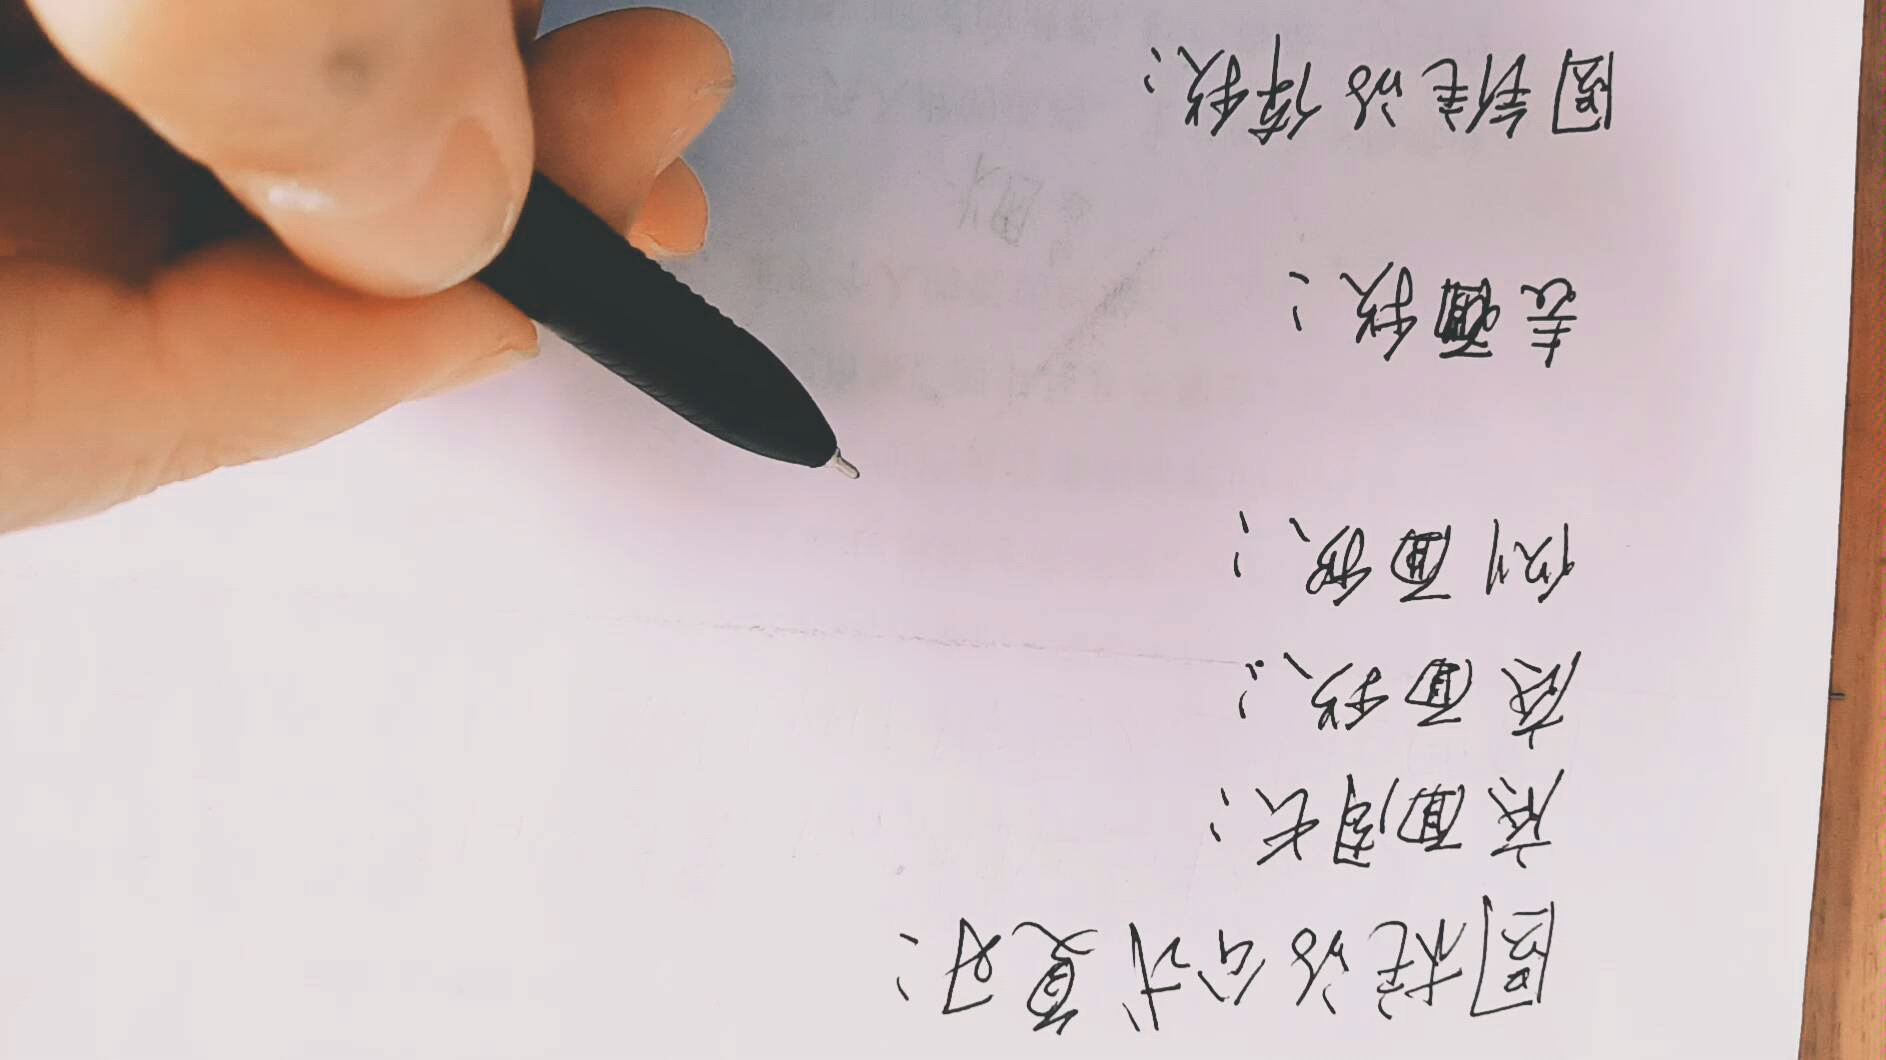 圆柱的公式复习:
底面周长:
底面积:
侧面积:
表面积:
圆锥的体积: